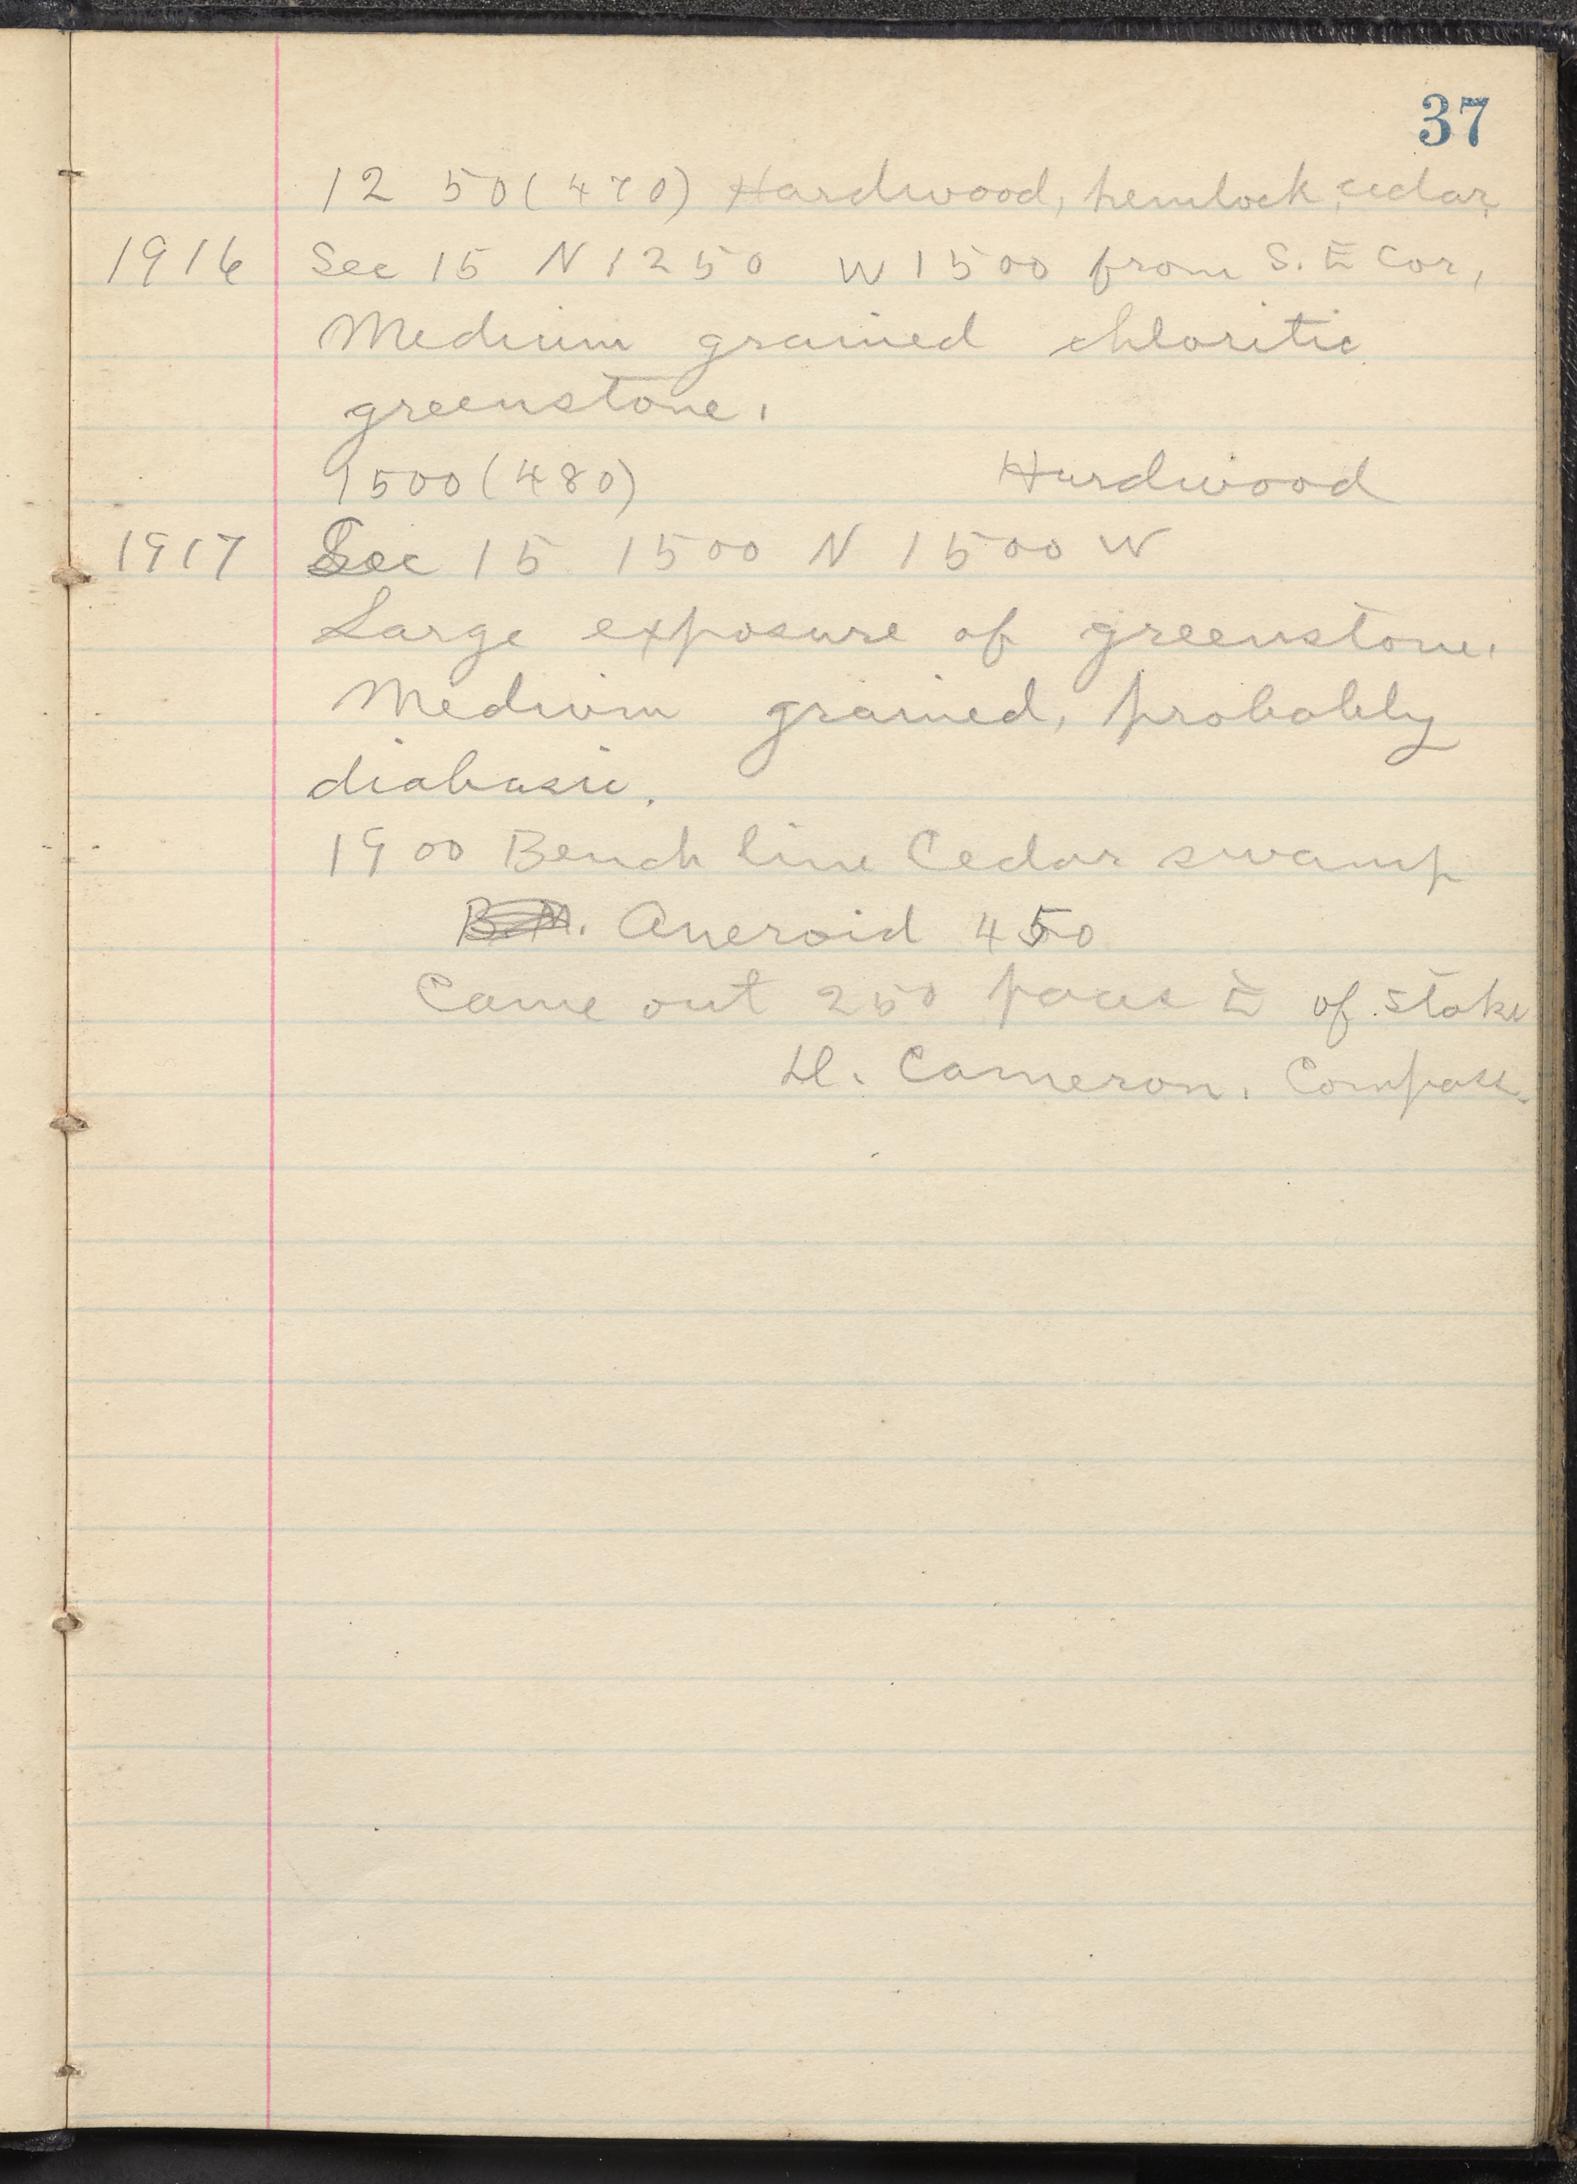 37
12 50 (470) Hardwood, hemlock, cedar,
1916 Sec 15 N 1250 W 1500 from S. E Cor,
Medium grained chloritic
greenstone.
1500 (480) Hardwood
1917 Sec 15 1500 N 1500 W
Large exposure of greenstone.
Medium grained, probably
diabasic.
1900 Bench line Cedar swamp
B.M. Aneroid 450
Came out 250 paces E of stake
H. Cameron, Compass.